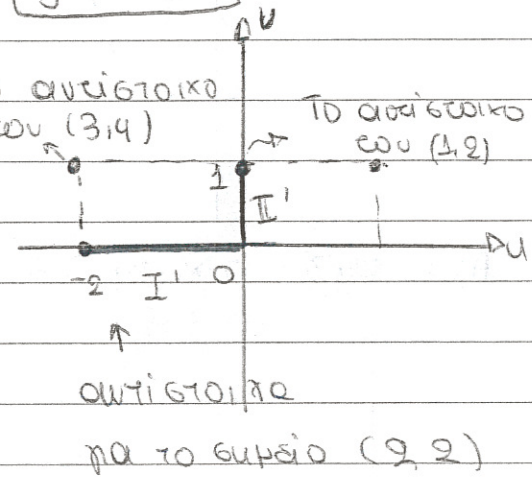 υ
αντίστοιχο
του (3,4)
Το αντίστοιχο
του (1,2)
1
II'
u
-2 I' 0
αντίστοιχα
για το σημείο (2,2)